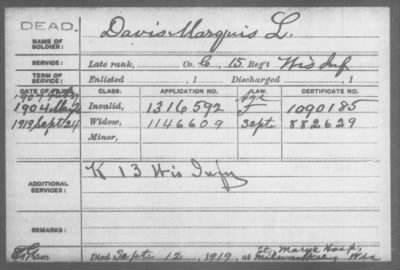 DEAD.
NAME OF SOLDIER: Davis Marquis L.
SERVICE: Late rank, Co. G, 15 Reg't Wis Inf
TERM OF SERVICE: Enlisted , 1 Discharged , 1
DATE OF FILING. CLASS. APPLICATION NO. LAW. CERTIFICATE NO.
Age
1904 Invalid, 1316592 1090185
1919 Sept 24 Widow, 1146609 Sept. 882629
Minor,
ADDITIONAL SERVICES: K 13 Wis Infy
REMARKS:
St. Mary's Hosp.
Died Sept. 12, 1919, at Milwaukee, Wis